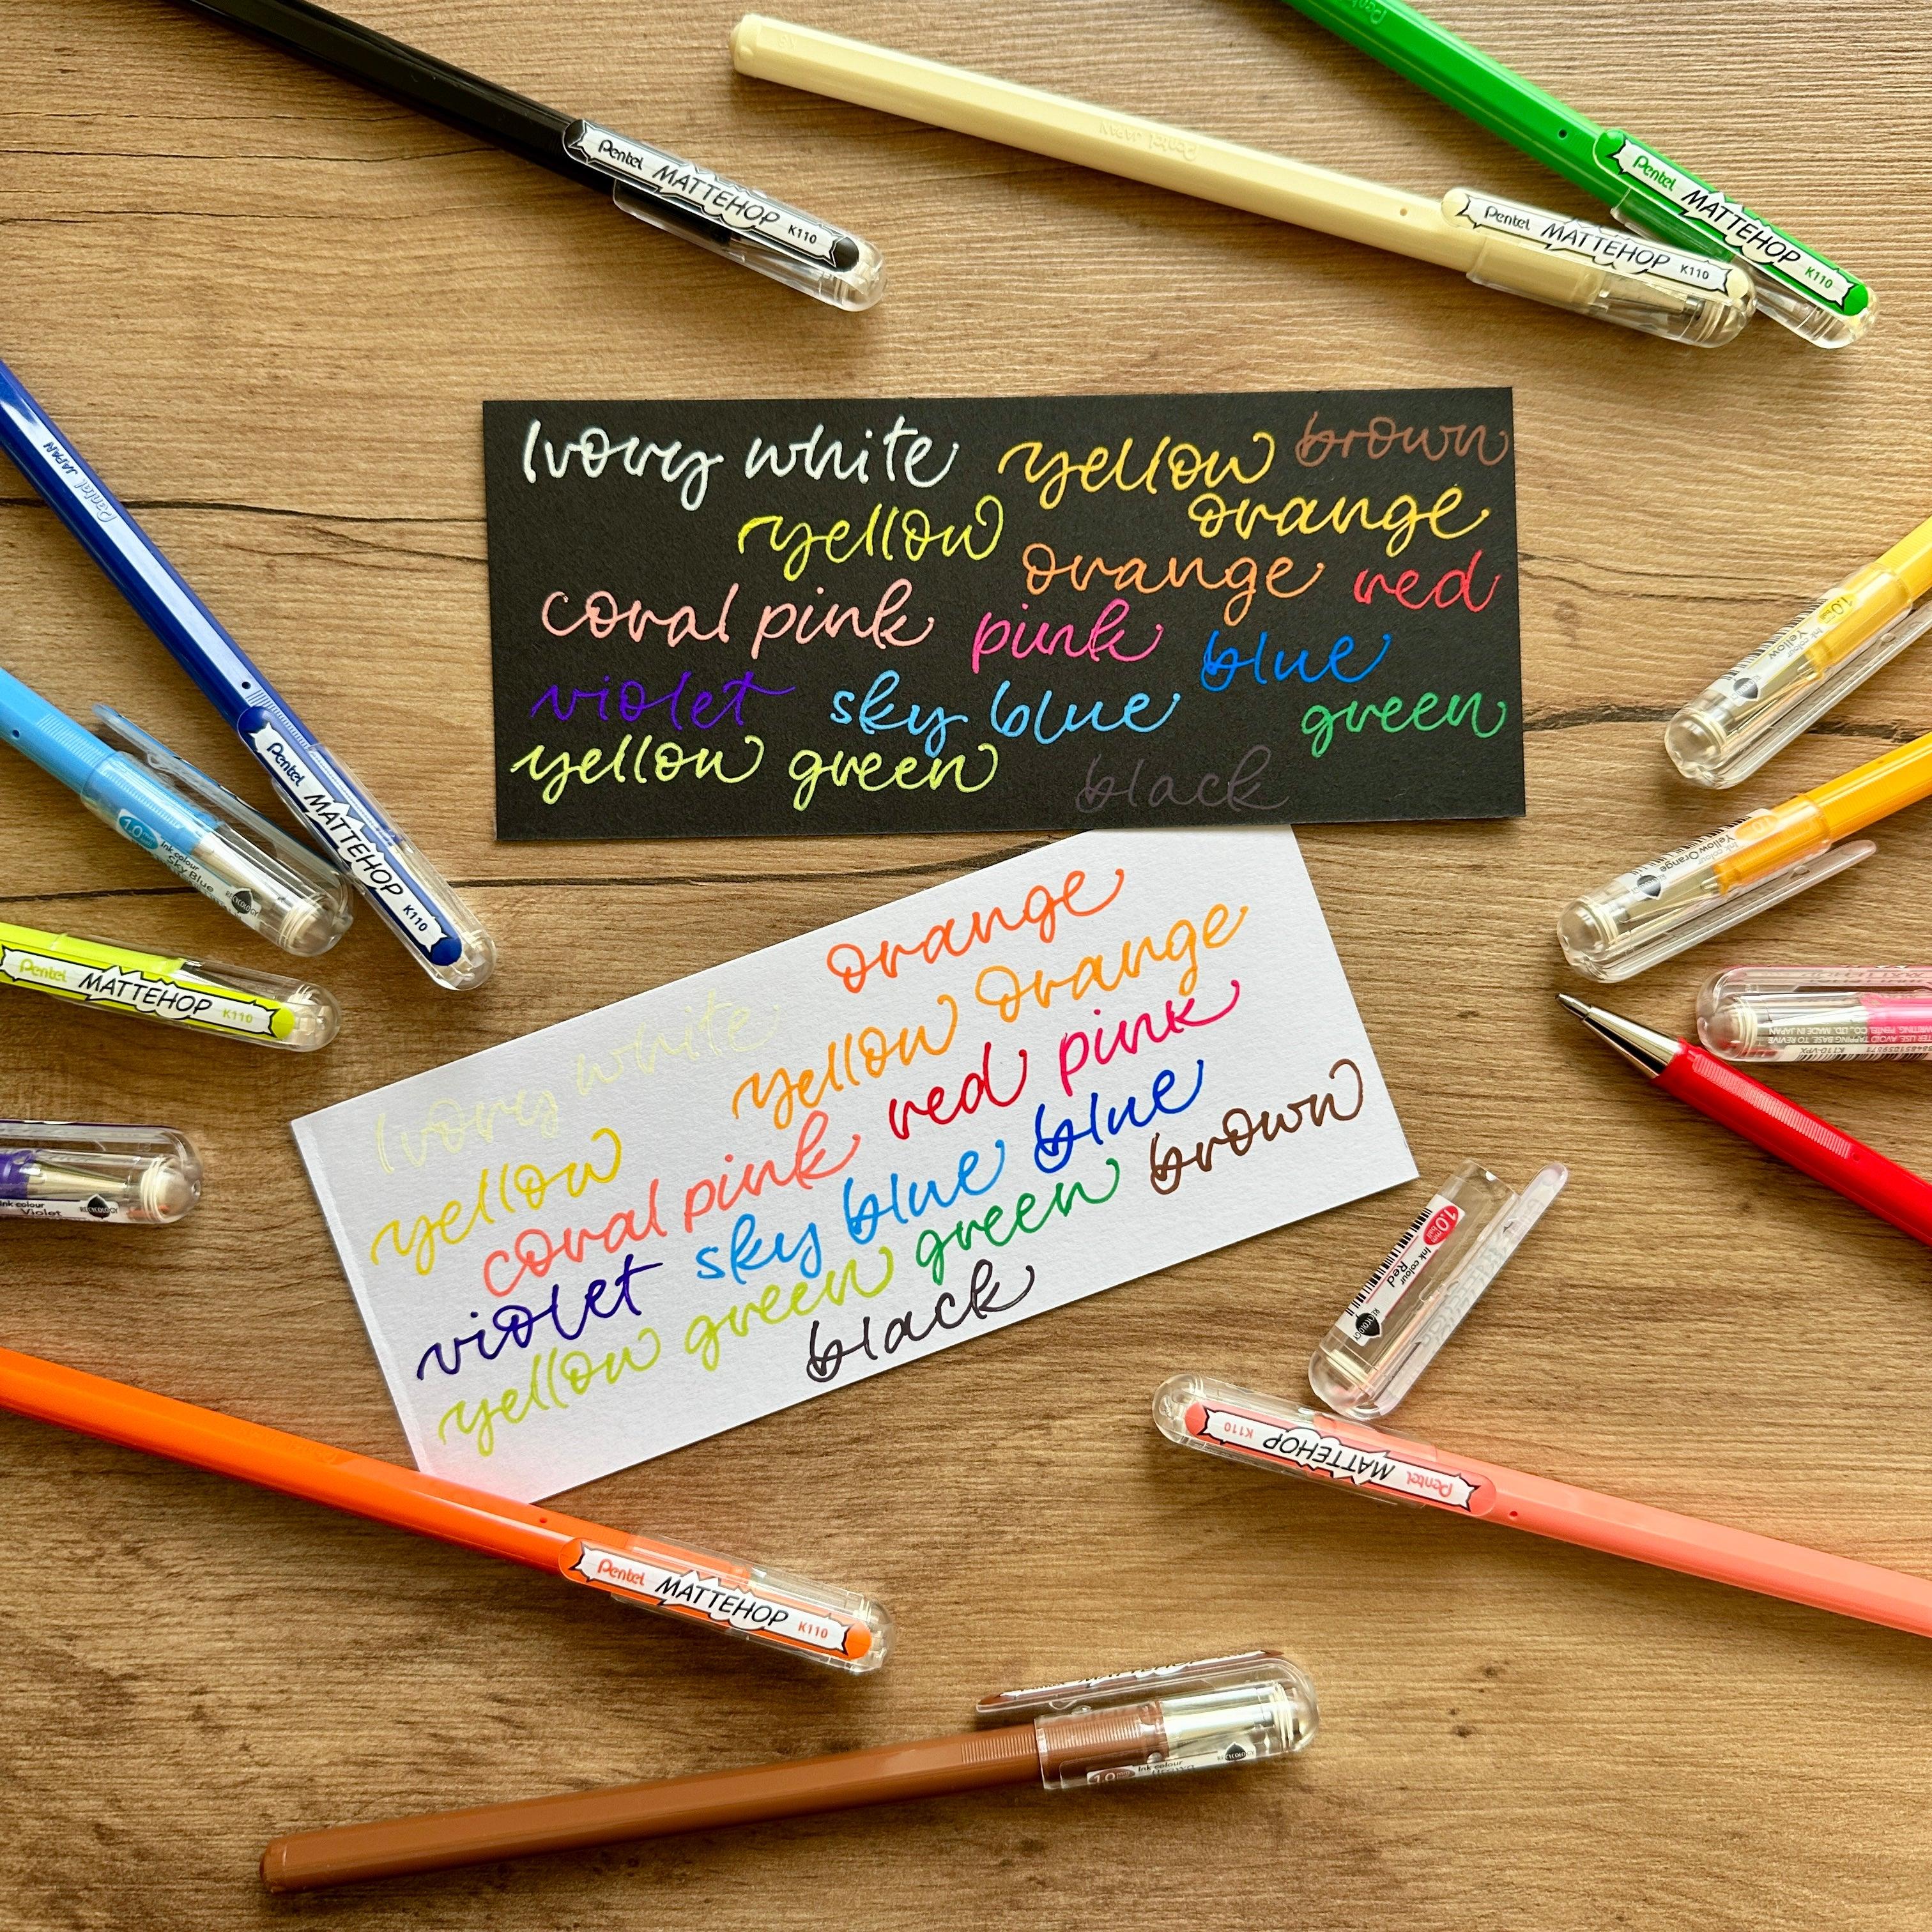 Pentel MATTEHOP K110
Pentel JAPAN
Pentel MATTEHOP K110
Pentel MATTEHOP K110
Pentel JAPAN
Pentel MATTEHOP K110
1.0 Ink colour
Sky Blue
RECYCOLOGY
Pentel MATTEHOP K110
Ink colour
Violet
RECYCOLOGY
Ivory white yellow brown
yellow orange
orange red
coral pink pink blue
violet sky blue green
yellow green black
orange
Ivory white yellow orange
yellow red pink
coral pink blue
violet sky blue brown
yellow green green
black
1.0
Ink colour
Yellow
Ink colour
Yellow Orange
MADE IN JAPAN
1.0 mm
Ink colour
Red
RECYCOLOGY
Pentel MATTEHOP K110
Pentel MATTEHOP K110
1.0 Ink colour
Brown
RECYCOLOGY